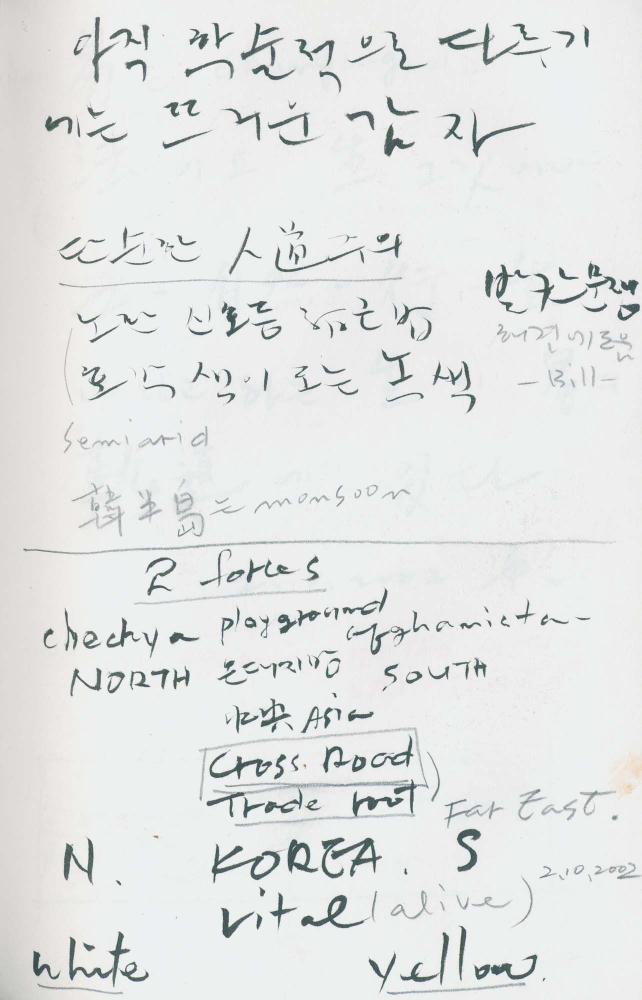 아직 학술적으로 다루기
에는 뜨거운 감자
人道주의
노란 신호등
색이 도는 녹색
- Bill -
semiarid
韓半島는 monsoon
2 forces
chechya playground afghanista-
NORTH 온대지방 SOUTH
中央 Asia
Cross. Road
Trade root
Far East.
N. KOREA. S
2,10,2002
vital (alive)
white yellow.